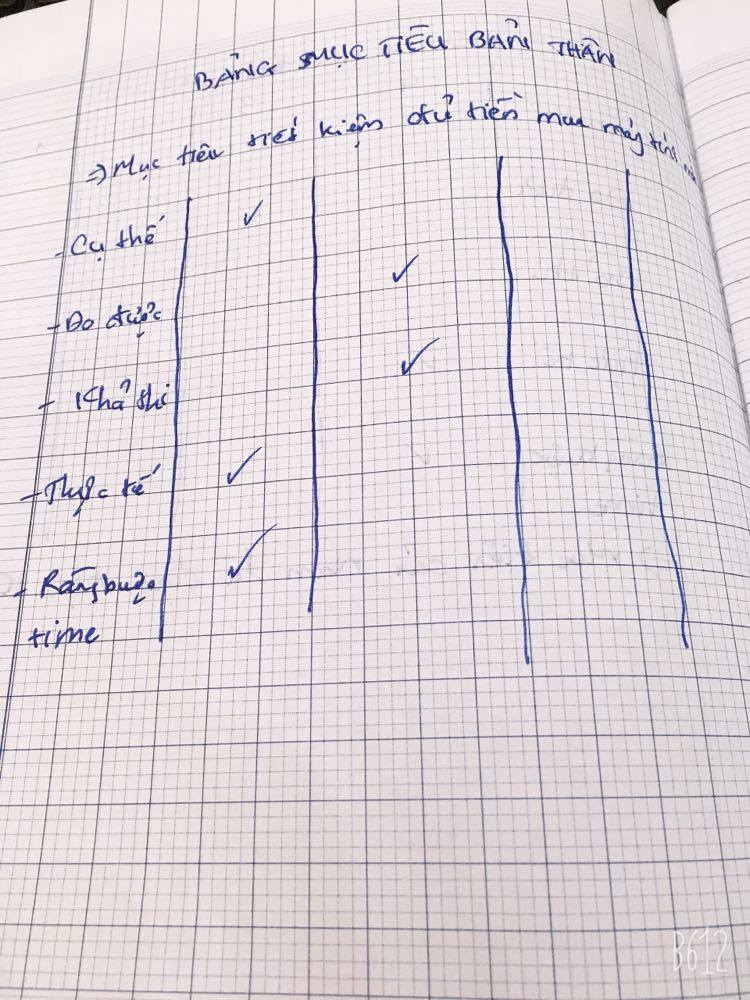 BẢNG MỤC TIÊU BẢN THÂN
⇒ Mục tiêu tiết kiệm đủ tiền mua máy tính
- Cụ thể ✓
- Đo được ✓
- Khả thi ✓
- Thực tế ✓
- Ràng buộc ✓
time
B612